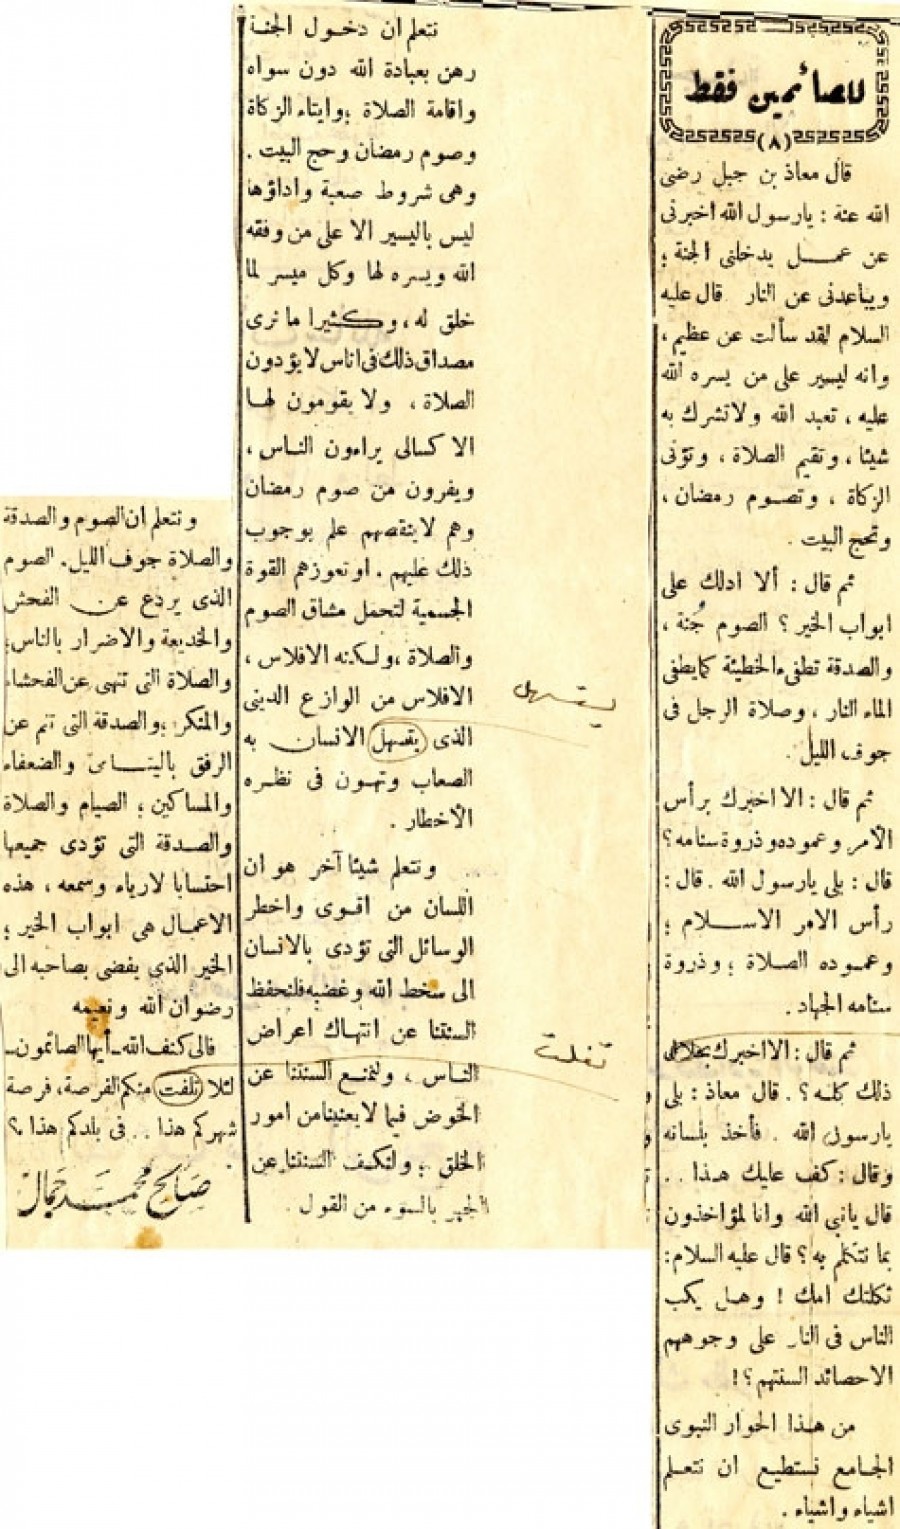 للصائمين فقط
(٨)
قال معاذ بن جبل رضى
الله عنة : يارسول الله اخبرنى
عن عمــل يدخلنى الجنة ؛
ويباعدنى عن النار قال عليه
السلام لقد سألت عن عظيم ،
وانه ليسير على من يسره الله
عليه ، تعبد الله ولاتشرك به
شيئا ، وتقيم الصلاة ، وتؤتى
الزكاة ، وتصوم رمضان ،
وتحج البيت .
ثم قال : ألا ادلك على
ابواب الخير ؟ الصوم جُنة ،
والصدقة تطفىء الخطيئة كمايطفى
الماء النار ، وصلاة الرجل فى
جوف الليل .
ثم قال : الا اخبرك برأس
الأمر وعموده وذروة سنامه ؟
قال : بلى يارسول الله . قال :
رأس الامر الاســلام ؛
وعمـوده الصلاة ؛ وذروة
سنامه الجهاد .
ثم قال : الا اخبرك بملاك
ذلك كله ؟ . قال معاذ : بلى
يارسول الله . فأخذ بلسانه
وقال : كف عليك هـذا . .
قال يانبي الله وانا لمؤاخذون
بما نتكلم به ؟ قال عليه السلام :
ثكلتك امك ! وهـل يكب
الناس فى النار على وجوههم
الاحصائد السنتهم ؟ !
من هـذا الحوار النبوى
الجـامع نستطيع ان نتعـلم
اشياء واشياء .
نتعلم ان دخـول الجنـة
رهن بعبادة الله دون سواه
واقامة الصلاة ؛ وايتاء الزكاة
وصوم رمضان وحج البيت .
وهى شروط صعبة واداؤها
ليس باليسير الا على من وفقه
الله ويسره لها وكل ميسر لما
خلق له ، وكـثيرا ما نرى
مصداق ذلك فى اناس لا يؤدون
الصلاة ، ولا يقومون لهـا
الا كسالى يراءون النـاس ،
ويفرون من صوم رمضان
وهم لا ينقصهم علم بوجوب
ذلك عليهم . او تعوزهم القوة
الجسمية لتحمل مشاق الصوم
والصلاة ، ولـكنه الافلاس ،
الافلاس من الوازع الدينى
الذى يقسهل الانسان به
الصعاب وتهـون فى نظـره
الأخطار .
يستسهل
ونتعلم شيئا آخر هو ان
اللسان من اقـوى واخطر
الوسائل التى تؤدى بالانسان
الى سخط الله وغضبه فلنحفظ
السنتنا عن انتهـاك اعراض
النـاس ، ولنمنـع السنتنا عن
الخوض فيما لايعنينامن امور
الخلق ؛ ولنكـف السنتنا عن
الجهر بالسوء من القول .
تفلت
ونتعلم ان الصوم والصدقة
والصلاة جوف الليل . الصوم
الذى يردع عن الفحش
والخديعة والاضرار بالناس ؛
والصلاة التى تنهى عن الفحشاء
والمنكر ؛ والصدقة التى تنم عن
الرفق باليتـامى والضعفاء
والمساكين ؛ الصيام والصلاة
والصـدقة التى تؤدى جميعها
احتسابا لارياء وسمعه ، هذه
الاعمـال هى ابواب الخير ؛
الخير الذي يفضى بصاحبه الى
رضوان الله ونعيمه
فالى كنف الله ـ أيها الصائمون ـ
لئلا تلفت منكم الفرصة ، فرصة
شهركم هذا . . فى بلدكم هذا ؟
صالح محمد جمال